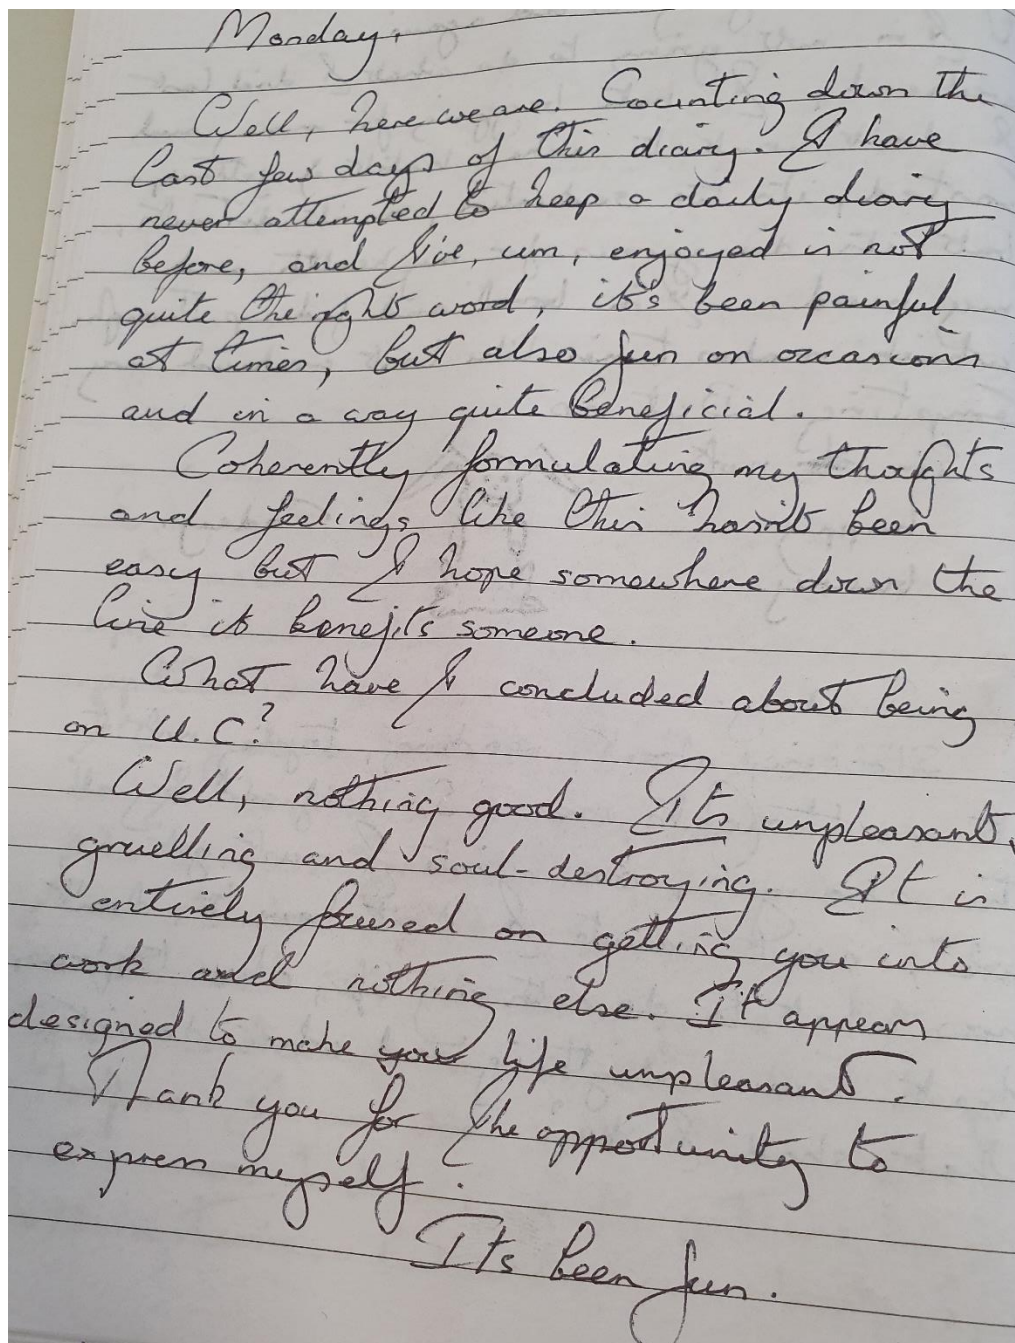 Monday.
Well, here we are. Counting down the
last few days of this diary. I have
never attempted to keep a daily diary
before, and I've, um, enjoyed is not
quite the right word, it's been painful
at times, but also fun on occasions
and in a way quite beneficial.
Coherently formulating my thoughts
and feelings like this hasn't been
easy but I hope somewhere down the
line it benefits someone.
What have I concluded about being
on U.C?
Well, nothing good. Its unpleasant,
gruelling and soul-destroying. It is
entirely focused on getting you into
work and nothing else. It appears
designed to make your life unpleasant.
Thank you for the opportunity to
express myself.
Its been fun.